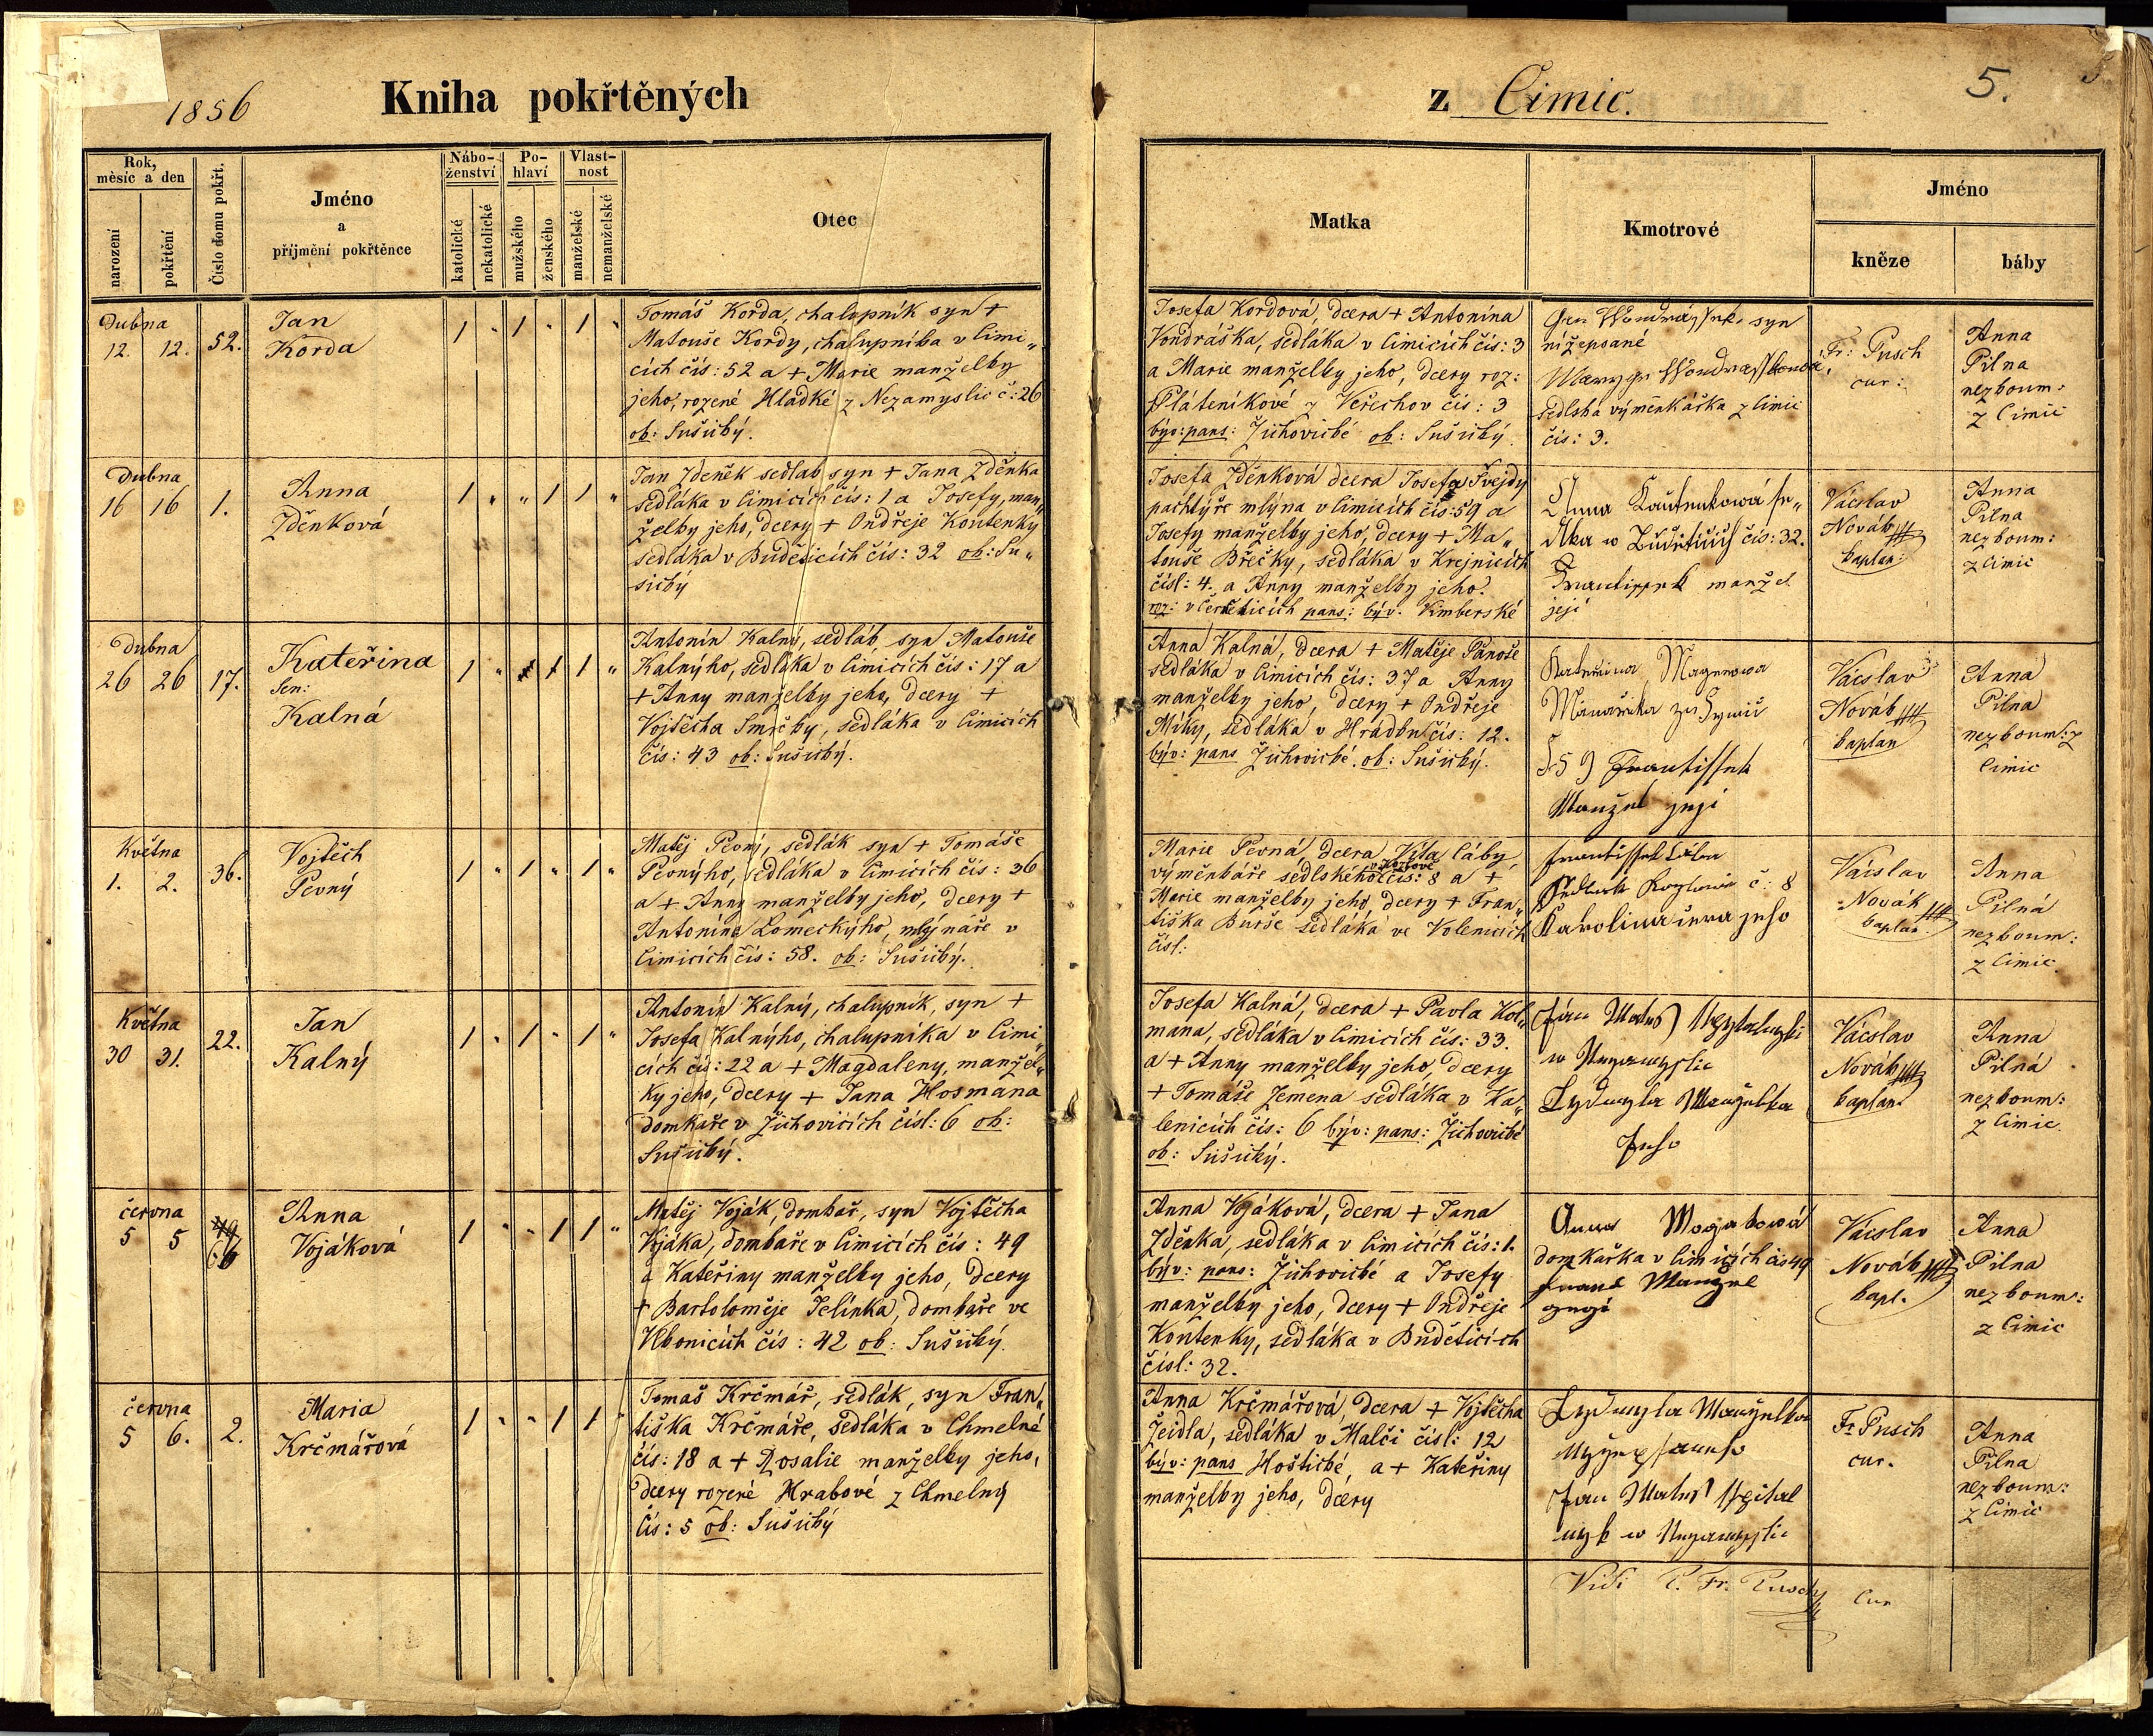 1856
Kniha pokřtěných
z Cimic.
5.
Rok,
měsíc a den
narození
pokřtění
Číslo domu pokřt.
Jméno
a
příjmění pokřtěnce
Nábo-
ženství
katolické
nekatolické
Po-
hlaví
mužského
ženského
Vlast-
nost
manželské
nemanželské
Otec
Matka
Kmotrové
Jméno
kněze
báby
Dubna
12. 12. 52.
Jan
Korda
1 " 1 " 1 "
Tomáš Korda, chalupník syn +
Matouše Kordy, chalupníka v Cimi„
cích čís: 52 a + Marie manželky
jeho, rozené Hladké z Nezamyslic č: 26
ob: Sušický.
Josefa Kordová, dcera + Antonína
Vondráška, sedláka v Cimicích čís: 3
a Marie manželky jeho, dcery roz:
Pláteníkové z Veřechov čís: 3
býv: pans: Žichovické ob: Sušický.
syn
nížepsané
sedlská výměnkářka z Cimic
čís: 3.
Fr: Pusch
cur:
Anna
Pilna
nezkoum:
z Cimic
Dubna
16 16 1.
Anna
Zděnková
1 " " 1 1 "
Jan Zdeněk sedlák syn + Jana Zděnka
sedláka v Cimicích čís: 1 a Josefy, man„
želky jeho, dcery + Ondřeje Koutenky
sedláka v Buděticích čís: 32 ob: Su„
šický
Josefa Zděnková dcera Josefa Švejdy
pachtýře mlýna v Cimicích čís: 59 a
Josefy manželky jeho, dcery + Ma„
touše Břečky, sedláka v Krejnicích
čísl: 4. a Anny manželky jeho.
roz: v pans: býv. Vimberské
Anna Kautenkowá se„
dlka w Buděticích čís: 32.
Frantissek manžel
její
Václav
Novák
kaplan:
Anna
Pilna
nezkoum:
z Cimic
Dubna
26 26 17.
Kateřina
Kalná
1 " 1 1 "
Antonín Kalný, sedlák, syn Matouše
Kalnýho, sedláka v Cimicích čís: 17 a
+ Anny manželky jeho, dcery +
Vojtěcha Smrčky, sedláka v Cimicích
čís: 43 ob: Sušický.
Anna Kalná, dcera + Matěje Panoše
sedláka v Cimicích čís: 37 a Anny
manželky jeho, dcery + Ondřeje
Míky, sedláka v Hrádku čís: 12.
býv: pans Žichovické. ob: Sušický.
Kateřina
59 Frantissek
Manžel její
Václav
Novák
kaplan
Anna
Pilna
nezkoum: z
Cimic
Května
1. 2. 36.
Vojtěch
Pevný
1 " 1 " 1 "
Matěj Pevný, sedlák syn + Tomáše
Pevnýho, sedláka v Cimicích čís: 36
a + Anny manželky jeho, dcery +
Antonína Lomeckýho, mlýnáře v
Cimicích čís: 58. ob: Sušický.
Marie Pevná, dcera Víta Cáby,
v Kozlově
výměnkáře sedlského čís: 8 a +
Marie manželky jeho, dcery + Fran„
tiška Burše sedláka ve Volenicích
čísl:
Frantissek Cába
č: 8
Karolina jeho
Václav
Novák
kaplan
Anna
Pilná
nezkoum:
z Cimic.
Května
30 31. 22.
Jan
Kalný
1 " 1 " 1 "
Antonín Kalný, chalupník, syn +
Josefa Kalnýho, chalupníka v Cimi„
cích čís: 22 a + Magdaleny, manžel„
ky jeho, dcery + Jana Hosmana
domkaře v Žichovicích čísl: 6 ob:
Sušický.
Josefa Kalná, dcera + Pavla Kol„
mana, sedláka v Cimicích čís: 33.
a + Anny manželky jeho, dcery
+ Tomáše Zemena sedláka v Ka„
lenicích čís: 6 býv: pans: Žichovické
ob: Sušický.
Jan
w Nezamyslic
Lydmyla Manželka
Jeho
Václav
Novák
kaplan.
Anna
Pilná
nezkoum:
z Cimic.
června
5 5 49
Anna
Vojáková
1 " " 1 1 "
Matěj Voják, domkař, syn Vojtěcha
Vojáka, domkaře v Cimicích čís: 49
a Kateřiny manželky jeho, dcery
+ Bartoloměje Jelínka, domkaře ve
Vlkonicích čís: 42 ob: Sušický.
Anna Vojáková, dcera + Jana
Zděnka, sedláka v Cimicích čís: 1.
býv: pans: Žichovické a Josefy
manželky jeho, dcery + Ondřeje
Koutenky, sedláka v Buděticích
čísl: 32.
Anna Wojakowá
domkařka v Cimicých čis 49
Manzel
Václav
Novák
kapl.
Anna
Pilna
nezkoum:
z Cimic
června
5 6. 2.
Maria
Krčmářová
1 " " 1 1 "
Tomáš Krčmář, sedlák, syn Fran„
tiška Krčmáře, sedláka v Chmelné
čís: 18 a + Rosalie manželky jeho,
dcery rozené Hrabové z Chmelný
čís: 5 ob: Sušický
Anna Krčmářová, dcera + Vojtěcha
Žeidla, sedláka v Malči čísl: 12
býv: pans Hoštické, a + Kateřiny
manželky jeho, dcery
Lydmyla Manželka
Jan
w Nezamyslic
Fr Pusch
cur.
Anna
Pilna
nezkoum:
z Cimic
Vidi P. Fr. Pusch cur